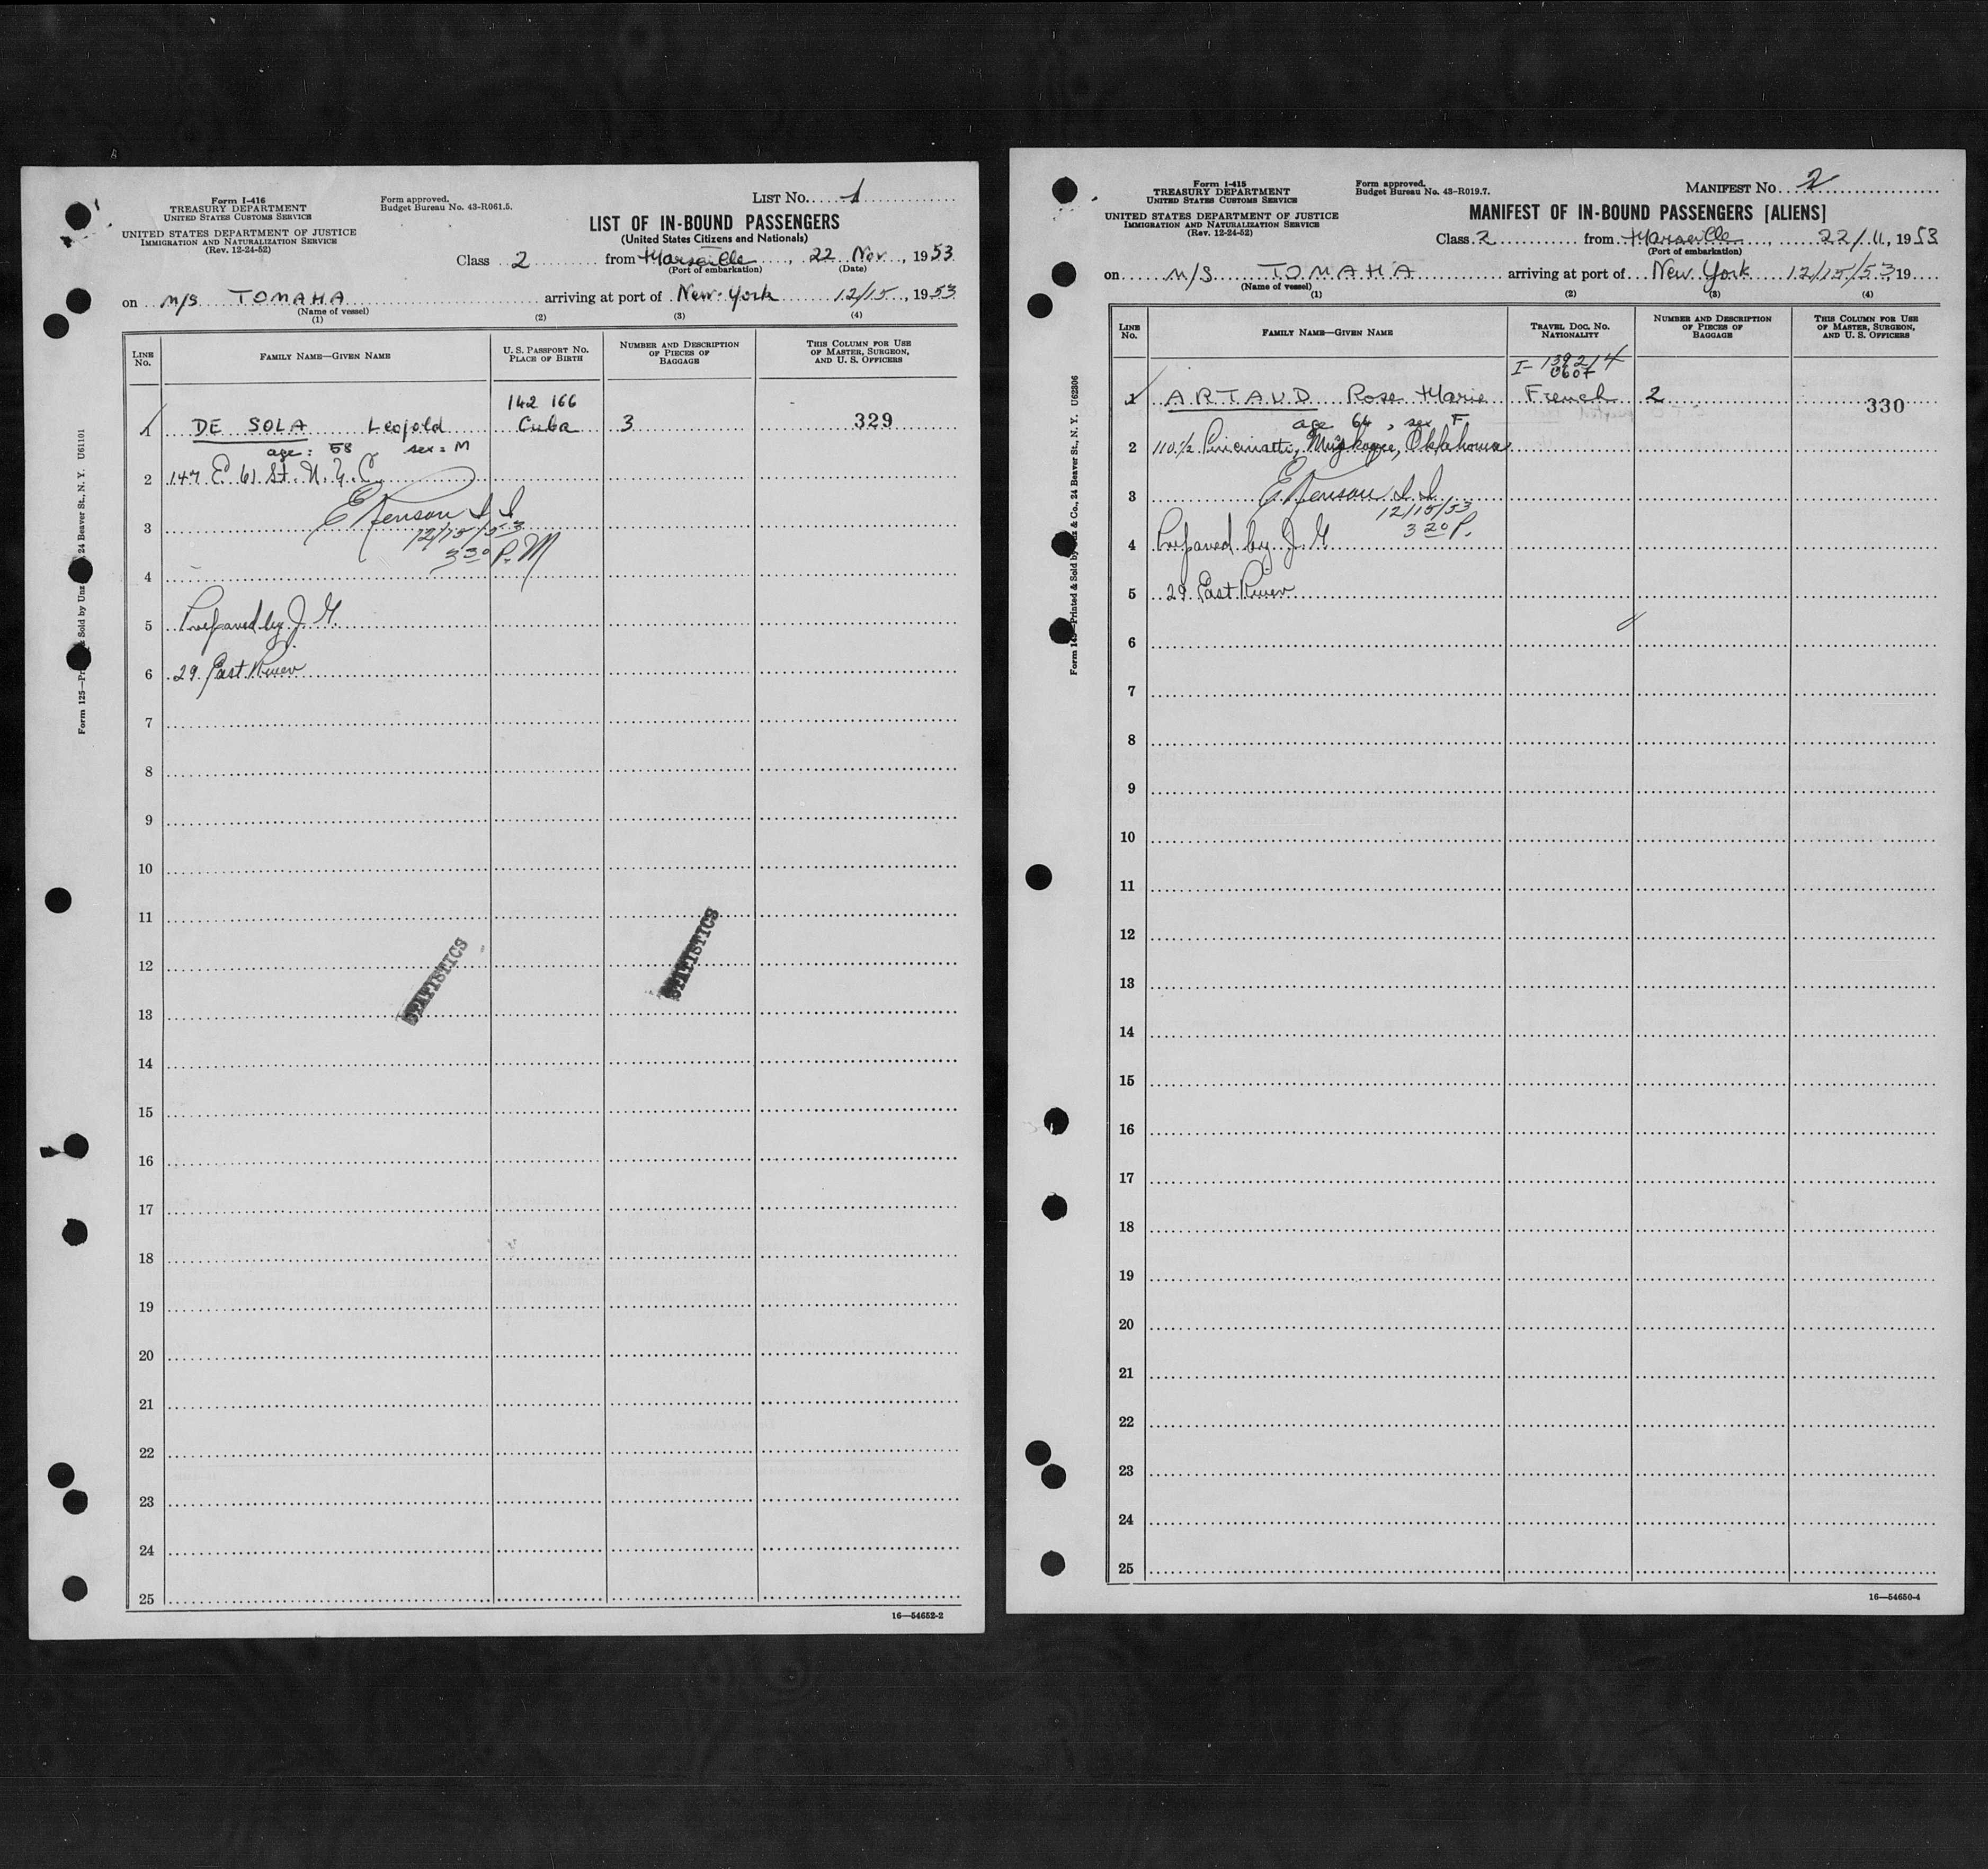 Form I-416
TREASURY DEPARTMENT
UNITED STATES CUSTOMS SERVICE
UNITED STATES DEPARTMENT OF JUSTICE
IMMIGRATION AND NATURALIZATION SERVICE
(Rev. 12-24-52)
Form approved.
Budget Bureau No. 43-R061.5.
LIST No. 1
LIST OF IN-BOUND PASSENGERS
(United States Citizens and Nationals)
Class 2 from Marseille, 22 Nov, 1953
(Port of embarkation) (Date)
on M/S TOMAHA arriving at port of New-York 12/15, 1953
(Name of vessel)
(1) (2) (3) (4)
LINE No. FAMILY NAME—GIVEN NAME U. S. PASSPORT NO. PLACE OF BIRTH NUMBER AND DESCRIPTION OF PIECES OF BAGGAGE THIS COLUMN FOR USE OF MASTER, SURGEON, AND U. S. OFFICERS
142 166
1 DE SOLA Leopold Cuba 3 329
age: 58 sex = M
2 147 E 61 St. N.Y.C.
3
12/15/53
3 30 P.M
4
5 Prepared by J.
6 29 East River
7
8
9
10
11
12
13
14
15
16
17
18
19
20
21
22
23
24
25
STATISTICS
STATISTICS
16—54652-2
Form 125—Printed & Sold by Unz & Co., 24 Beaver St., N. Y. U61101
Form I-415
TREASURY DEPARTMENT
UNITED STATES CUSTOMS SERVICE
UNITED STATES DEPARTMENT OF JUSTICE
IMMIGRATION AND NATURALIZATION SERVICE
(Rev. 12-24-52)
Form approved.
Budget Bureau No. 43-R019.7.
MANIFEST No. 2
MANIFEST OF IN-BOUND PASSENGERS [ALIENS]
Class 2 from Marseille, 22/11, 1953
(Port of embarkation)
on M/S TOMAHA arriving at port of New York 12/15/53 19
(Name of vessel)
(1) (2) (3) (4)
LINE No. FAMILY NAME—GIVEN NAME TRAVEL DOC. NO. NATIONALITY NUMBER AND DESCRIPTION OF PIECES OF BAGGAGE THIS COLUMN FOR USE OF MASTER, SURGEON, AND U. S. OFFICERS
1 ARTAUD Rose Marie French 2 330
age 64, sex F
2 110 1/2 Cincinatti, Muskogee, Oklahoma
3
12/15/53
3 20 P.
4 Prepared by J.
5 29 East River
6
7
8
9
10
11
12
13
14
15
16
17
18
19
20
21
22
23
24
25
16—54650-4